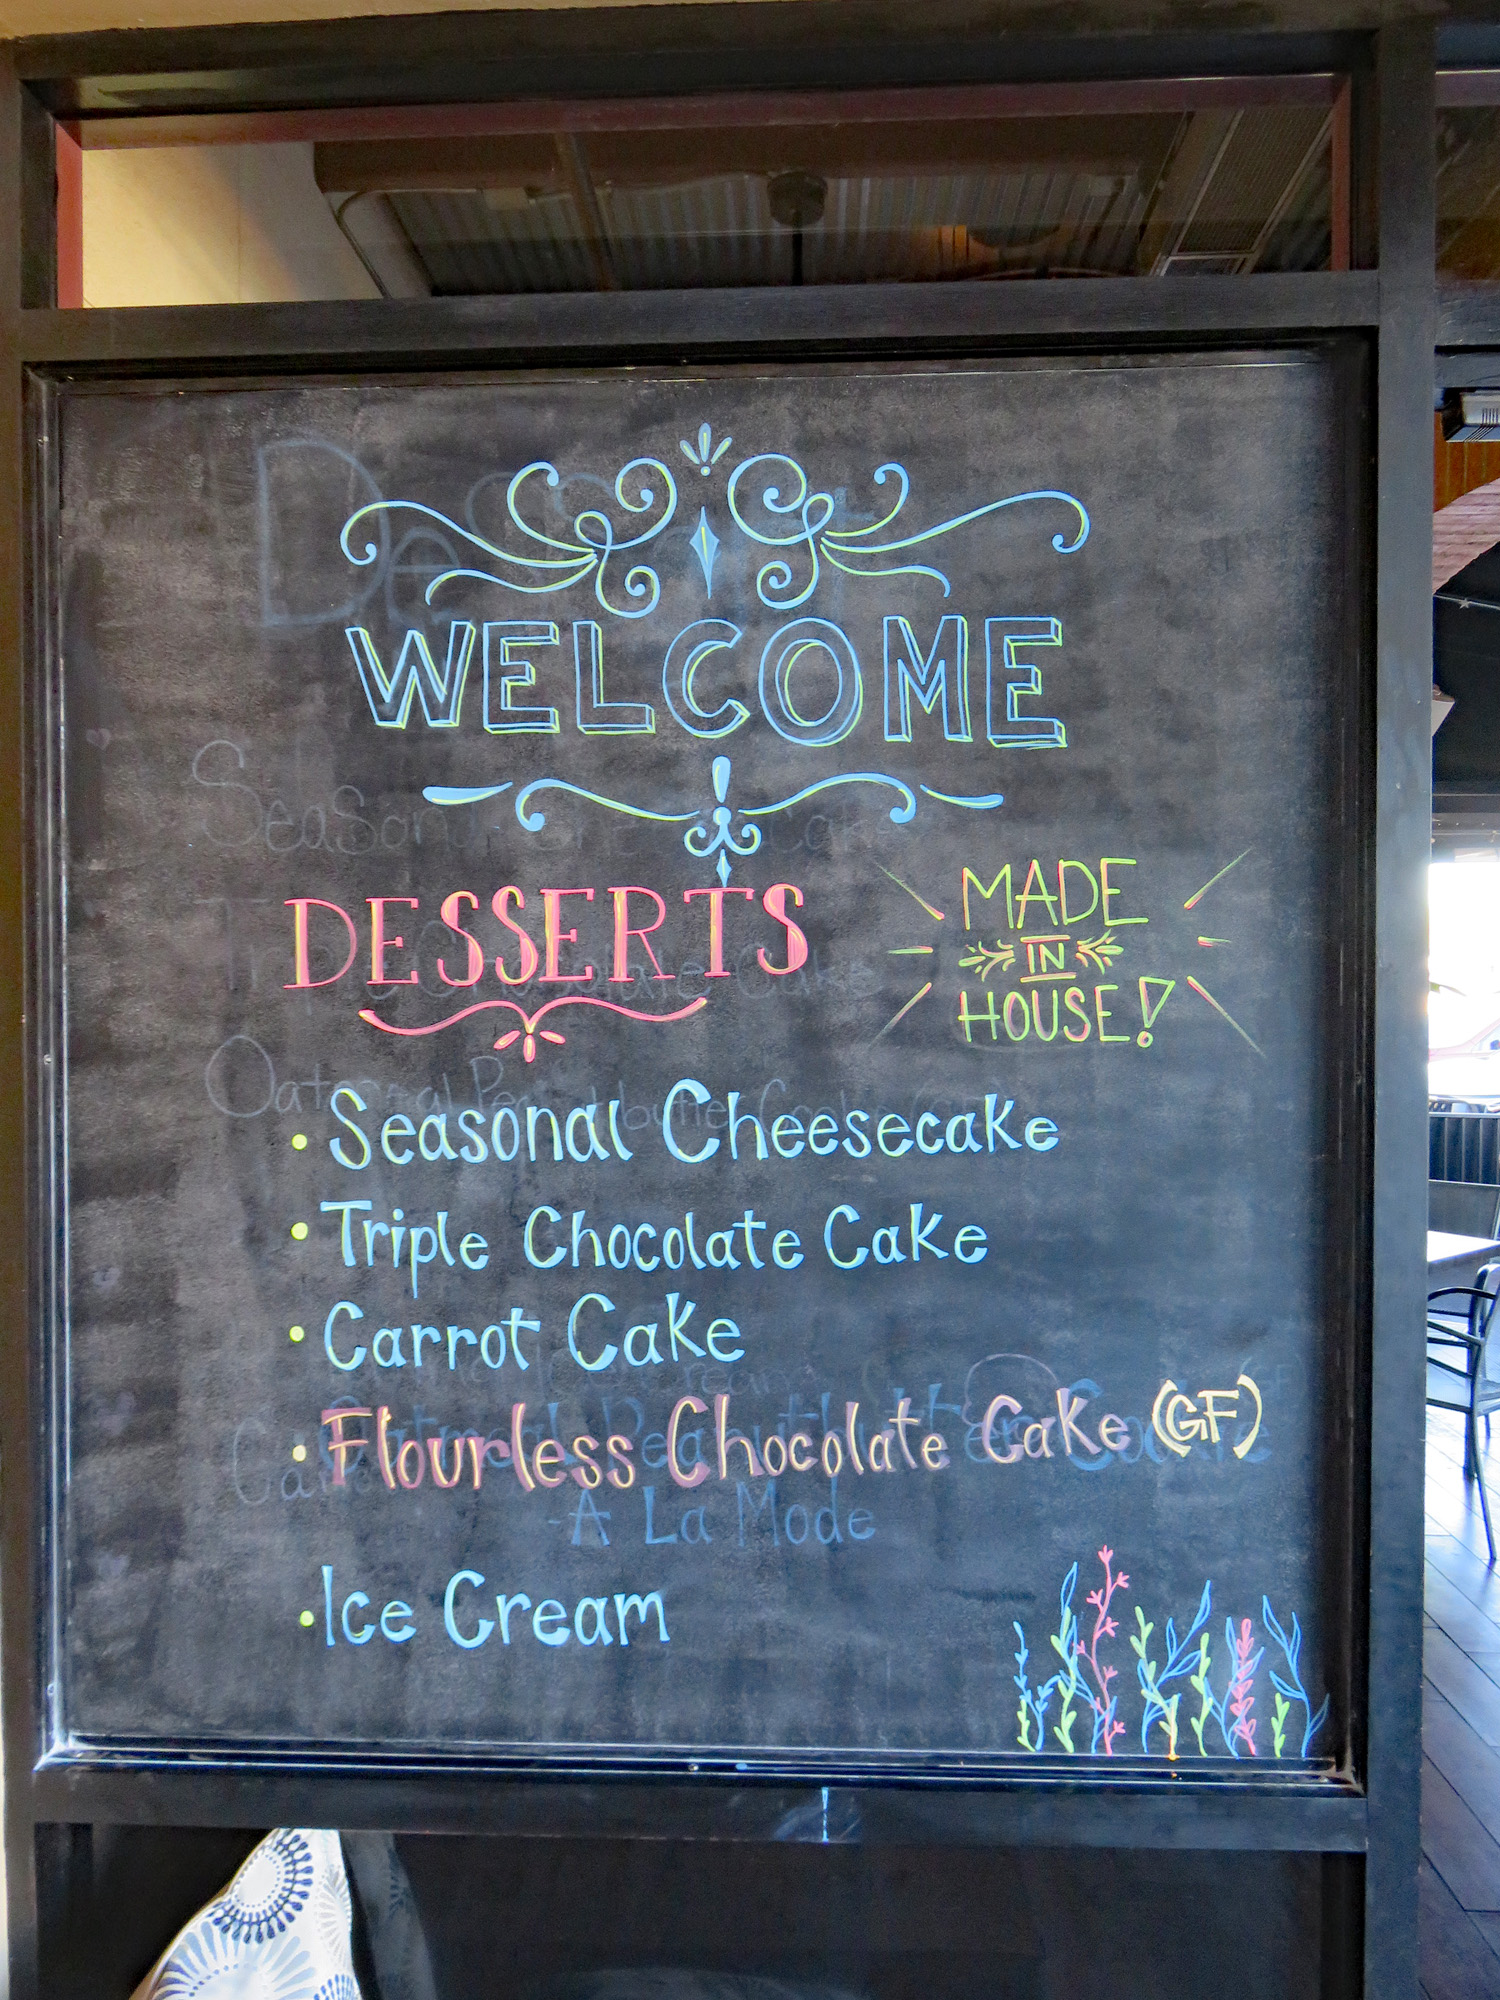 WELCOME
DESSERTS
MADE
IN
HOUSE!
• Seasonal Cheesecake
• Triple Chocolate Cake
• Carrot Cake
• Flourless Chocolate Cake (GF)
-A La Mode
• Ice Cream